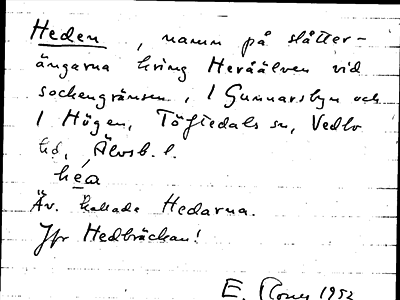 Heden, namn på slåtter-
ängarna kring Heråälven vid
sockengränsen, / Gunnarsbyn och
/ Högen, Töftedals sn, Vedbo
hd, Älvsb. l.
hea
Äv. kallade Hedarna.
Jfr Hedbräckan!
E. 1952